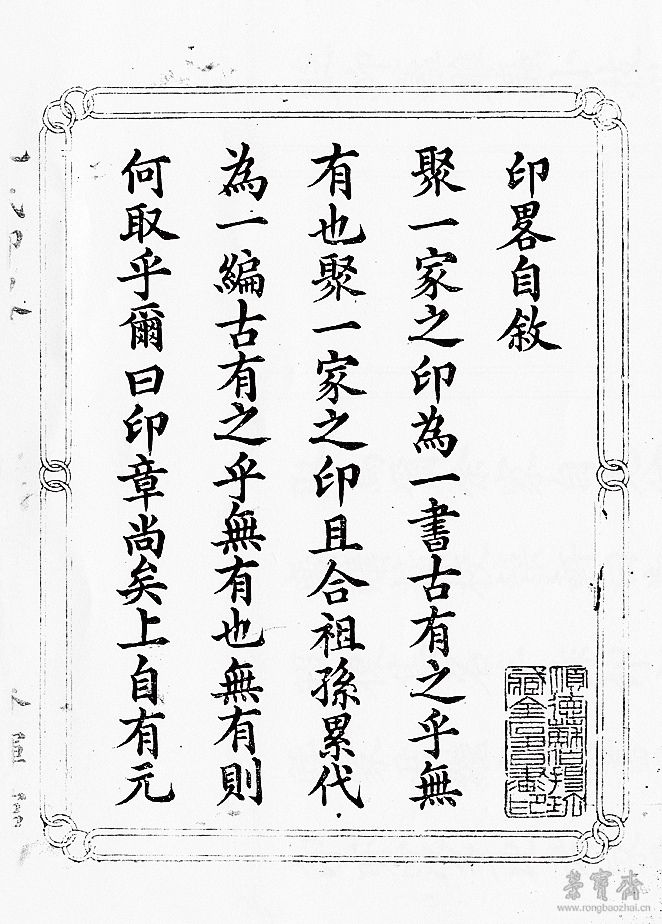 印畧自敘
聚一家之印為一書古有之乎無
有也聚一家之印且合祖孫累代
為一編古有之乎無有也無有則
何取乎爾曰印章尚矣上自有元
榮寶齋
www.rongbaozhai.cn